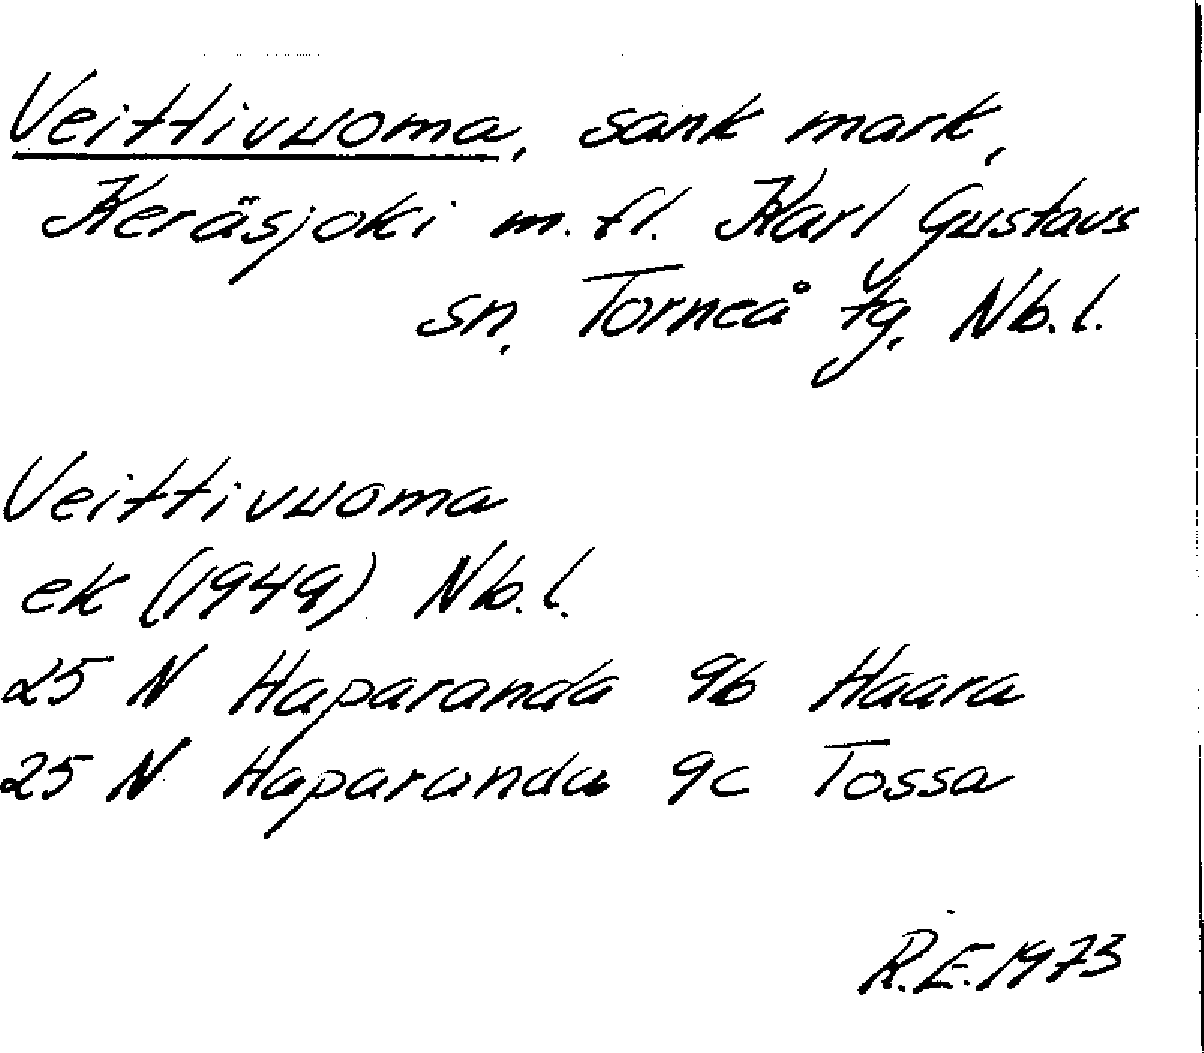 Veittivuoma, sank mark,
Keräsjoki m.fl. Karl Gustavs
sn, Torneå tg, Nb.l.
Veittivuoma
ek (1949) Nb.l.
25 N Haparanda 9b Haara
25 N Haparanda 9c Tossa
R.E. 1973